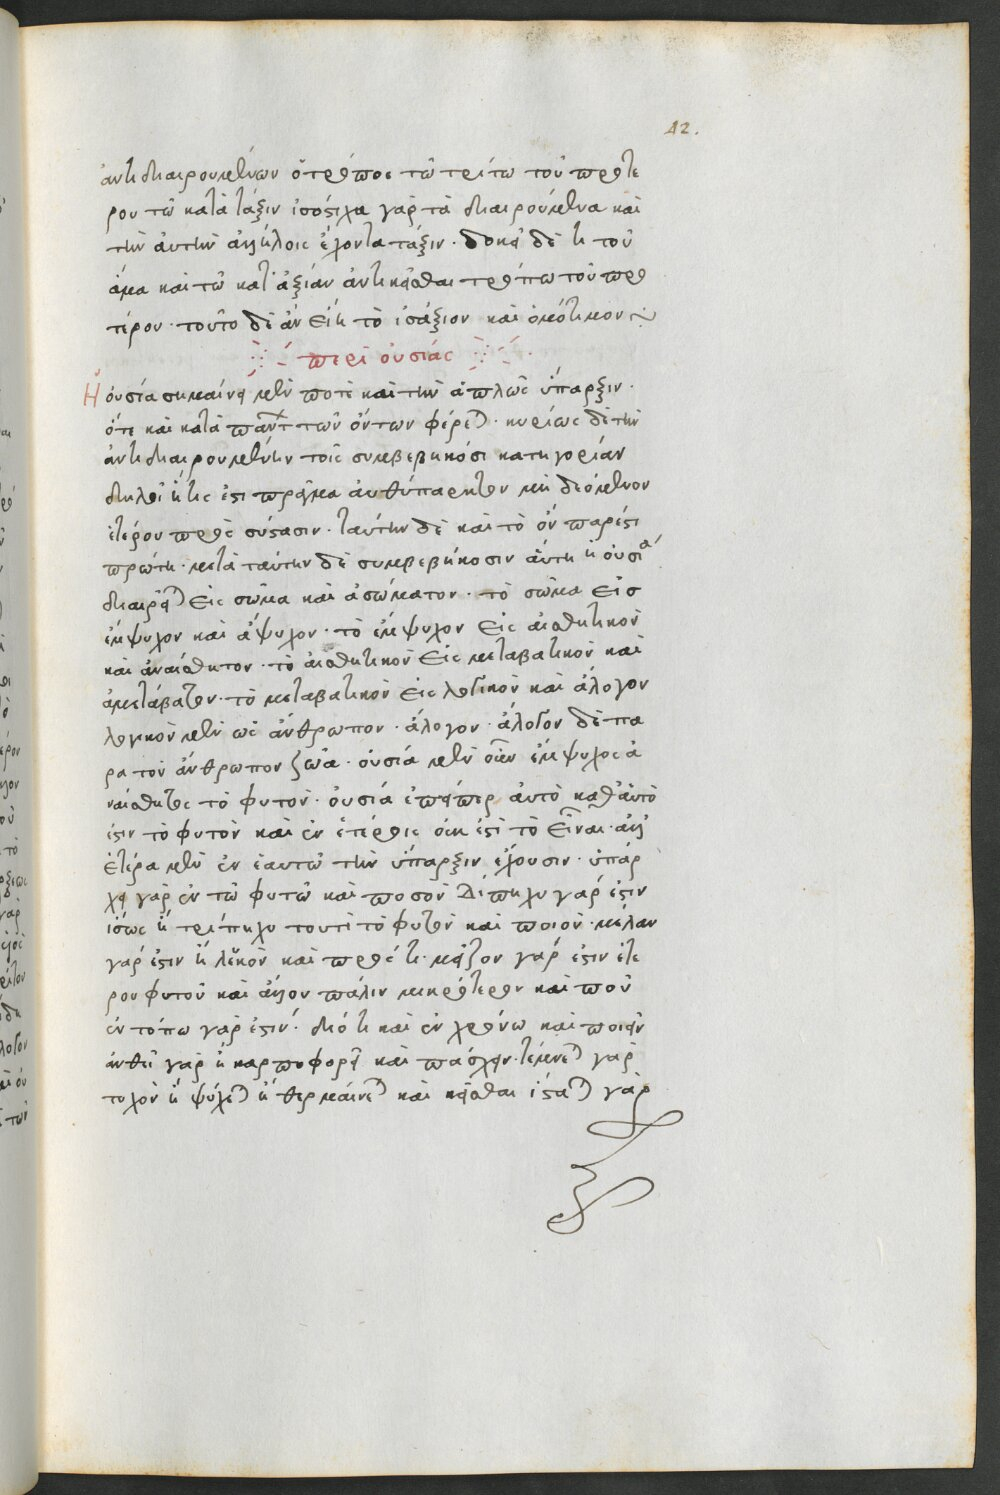 42.
ἀντιδιαιρουμένων ὁ τρόπος τῶ τρίτω τοῦ προτέ
ρου τῶ κατὰ τάξιν ἰσόστιχα γὰρ τὰ διαιρούμενα καὶ
τὴν ἀυτὴν ἀλλήλοις ἔχοντα τάξιν · δοκεῖ δέ τι τοῦ
ἅμα καὶ τῶ κατ' ἀξίαν ἀντικεῖσθαι τρόπω τοῦ προ
τέρου · τοῦτο δὲ ἂν εἴη τὸ ἰσάξιον καὶ ὁμότιμον
περὶ ουσίας
Ἡ ὀυσία σημαίνει μὲν ποτὲ καὶ τὴν ἁπλῶς ὕπαρξιν ·
ὅτε καὶ κατὰ πάντ των ὄντων φέρεται · κυρίως δὲ τὴν
ἀντιδιαιρουμένην τοῖς συμβεβηκόσι κατηγορίαν
δηλοῖ ἥτις ἐστὶ πρᾶγμα ἀυθύπαρκτον μὴ δεόμενον
ἑτέρου πρὸς σύστασιν · ταύτην δὲ καὶ τὸ ὂν παρέστι
πρώτη · μετὰ ταύτην δὲ συμβεβήκοσιν ἀύτη ἡ ὀυσία
διαιρεῖται εἰς σῶμα καὶ ἀσώματον · τὸ σῶμα εἰς
ἔμψυχον καὶ ἄψυχον · τὸ ἔμψυχον εἰς αἰσθητικὸν
καὶ ἀναίσθητον · τὸ αἰσθητικὸν εἰς μεταβατικὸν καὶ
ἀμετάβατον · τὸ μεταβατικὸν εἰς λογικὸν καὶ άλογον
λογικὸν μὲν ὡς ἄνθρωπον · άλογον · άλογον δὲ πα
ρα τὸν ἄνθρωπον ζῶα · ὀυσία μὲν οὖν ἔμψυχος ἀ
ναίσθητος τὸ φυτόν · ὀυσία ἐπείπερ ἀυτὸ καθ' ἀυτό
ἐστιν τὸ φυτὸν καὶ ἐν ἑτέροις ὀυκ ἐστὶ τὸ εἶναι · ἀλλ'
ἕτερα μὲν ἐν ἑαυτῶ τὴν ὕπαρξιν ἔχουσιν · ὑπάρ
χει γὰρ ἐν τῶ φυτῶ καὶ ποσόν Δίπηχυ γάρ ἐστιν
ἴσως ἢ τρίπηχυ τουτὶ τὸ φυτὸν καὶ ποιὸν · μέλαν
γάρ ἐστιν ἢ λευκὸν καὶ πρός τι · μεῖζον γάρ ἐστιν ἑτέ
ρου φυτοῦ καὶ ἄλλου πάλιν μικρότερον καὶ ποῦ
ἐν τόπω γὰρ ἐστιν · διότι καὶ ἐν χρόνω καὶ ποιεῖν
ἀνθεῖ γὰρ ἢ καρποφορεῖ καὶ πάσχειν · τέμνεται γὰρ
τυχὸν ἢ ψύχεται ἢ θερμαίνεται καὶ κεῖσθαι ἵσταται γὰρ